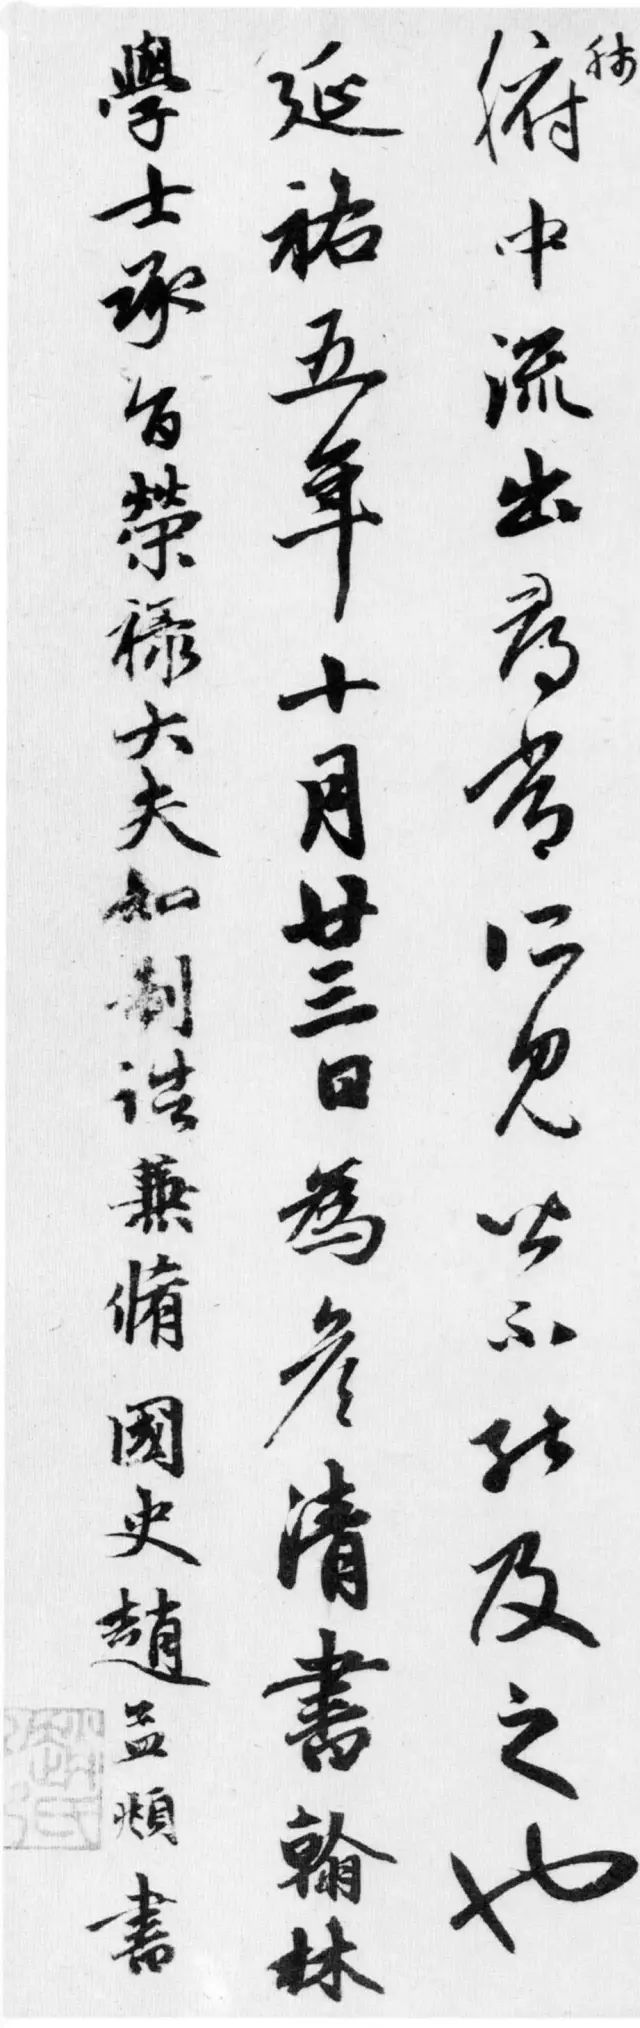 肺腑中流出尋常所見皆不能及之也
延祐五年十月廿三日為彥清書翰林
學士承旨榮祿大夫知制誥兼脩國史趙孟頫書
趙氏